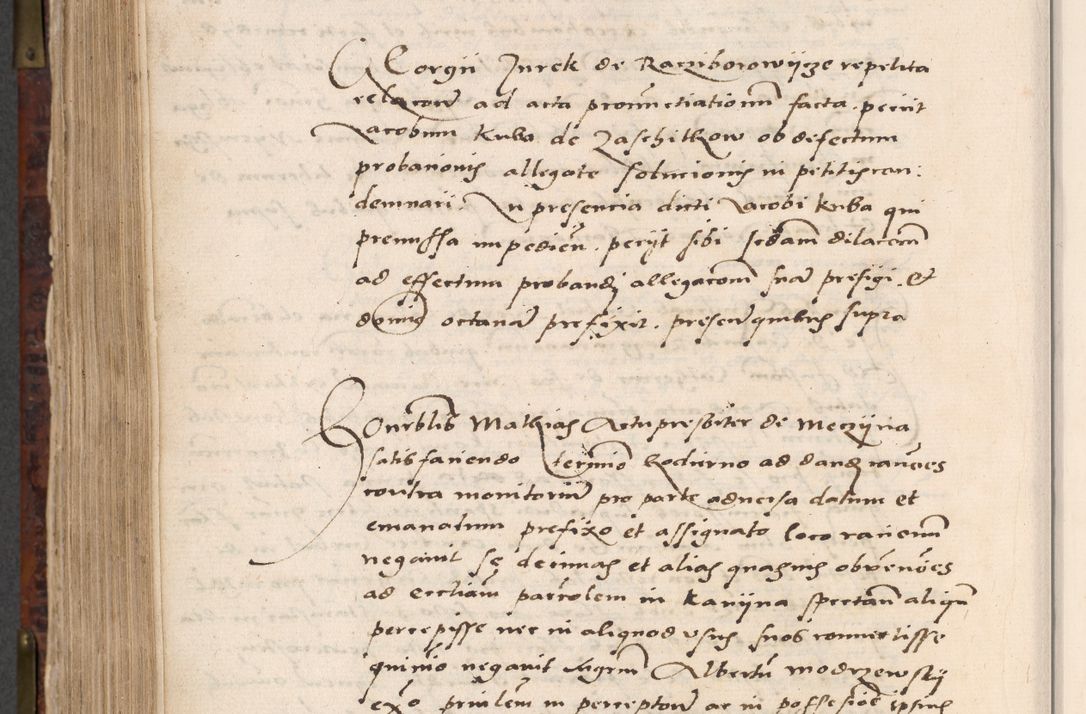 Georgii Jurek de Racziborowijcze repetita
relacoñ ad acta pronunctiationum facta . periit
Jacobum Kuba de Zaschitkow ob defectum
probacionis allegate solucionis in petitis con:
demnari . In presencia dicti Jacobi Kuba qui
premissa impedieñ . periit sibi sedam dilacoeñ
ad effectum probandi allegacoem suã prefigi . Et
domins octauã prefixit . presentibus quibus supra
Honrblis Mathias Archipresbiter de Meczijna
satisfaciendo termino hodierno ad dandas cauoes
contra monitoriũ pro parte aduersa datum et
emanatum prefixo et assignato loco racionum
negauit se decimas et alias quasuis obuenoes
ad eccliam parcolem in Kanijna spectañ aliqm
percepisse nec in aliquod usus suos conuertisse
quinio negauit Magrum Albertũ Modrzewskij
exo priulem in perceptoñ ac in possessioe ipsius